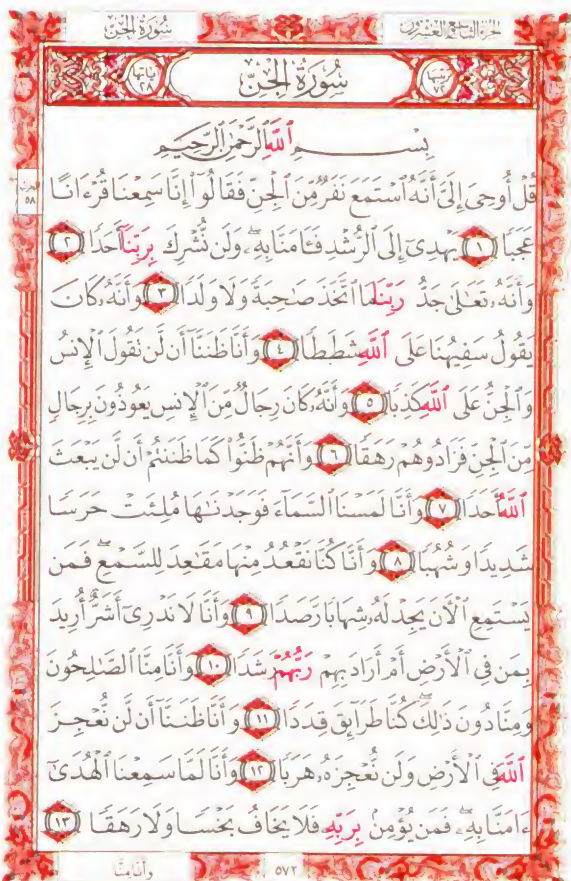 سُورَةُ الجِنّ الجزء التاسع والعشرون
آياتها ٢٨ سُورَةُ الجِنّ ترتيبها ٧٢
بِسْمِ ٱللَّهِ ٱلرَّحْمَٰنِ ٱلرَّحِيمِ
قُلْ أُوحِىَ إِلَىَّ أَنَّهُ ٱسْتَمَعَ نَفَرٌ مِّنَ ٱلْجِنِّ فَقَالُوٓا۟ إِنَّا سَمِعْنَا قُرْءَانًا
الحزب ٥٨
عَجَبًا ١ يَهْدِىٓ إِلَى ٱلرُّشْدِ فَـَٔامَنَّا بِهِۦ ۖ وَلَن نُّشْرِكَ بِرَبِّنَآ أَحَدًا ٢
وَأَنَّهُۥ تَعَٰلَىٰ جَدُّ رَبِّنَا مَا ٱتَّخَذَ صَٰحِبَةً وَلَا وَلَدًا ٣ وَأَنَّهُۥ كَانَ
يَقُولُ سَفِيهُنَا عَلَى ٱللَّهِ شَطَطًا ٤ وَأَنَّا ظَنَنَّآ أَن لَّن تَقُولَ ٱلْإِنسُ
وَٱلْجِنُّ عَلَى ٱللَّهِ كَذِبًا ٥ وَأَنَّهُۥ كَانَ رِجَالٌ مِّنَ ٱلْإِنسِ يَعُوذُونَ بِرِجَالٍ
مِّنَ ٱلْجِنِّ فَزَادُوهُمْ رَهَقًا ٦ وَأَنَّهُمْ ظَنُّوا۟ كَمَا ظَنَنتُمْ أَن لَّن يَبْعَثَ
ٱللَّهُ أَحَدًا ٧ وَأَنَّا لَمَسْنَا ٱلسَّمَآءَ فَوَجَدْنَٰهَا مُلِئَتْ حَرَسًا
شَدِيدًا وَشُهُبًا ٨ وَأَنَّا كُنَّا نَقْعُدُ مِنْهَا مَقَٰعِدَ لِلسَّمْعِ ۖ فَمَن
يَسْتَمِعِ ٱلْـَٔانَ يَجِدْ لَهُۥ شِهَابًا رَّصَدًا ٩ وَأَنَّا لَا نَدْرِىٓ أَشَرٌّ أُرِيدَ
بِمَن فِى ٱلْأَرْضِ أَمْ أَرَادَ بِهِمْ رَبُّهُمْ رَشَدًا ١٠ وَأَنَّا مِنَّا ٱلصَّٰلِحُونَ
وَمِنَّا دُونَ ذَٰلِكَ ۖ كُنَّا طَرَآئِقَ قِدَدًا ١١ وَأَنَّا ظَنَنَّآ أَن لَّن نُّعْجِزَ
ٱللَّهَ فِى ٱلْأَرْضِ وَلَن نُّعْجِزَهُۥ هَرَبًا ١٢ وَأَنَّا لَمَّا سَمِعْنَا ٱلْهُدَىٰٓ
ءَامَنَّا بِهِۦ ۖ فَمَن يُؤْمِنۢ بِرَبِّهِۦ فَلَا يَخَافُ بَخْسًا وَلَا رَهَقًا ١٣
وَأَنَّا مِنَّا ٥٧٢